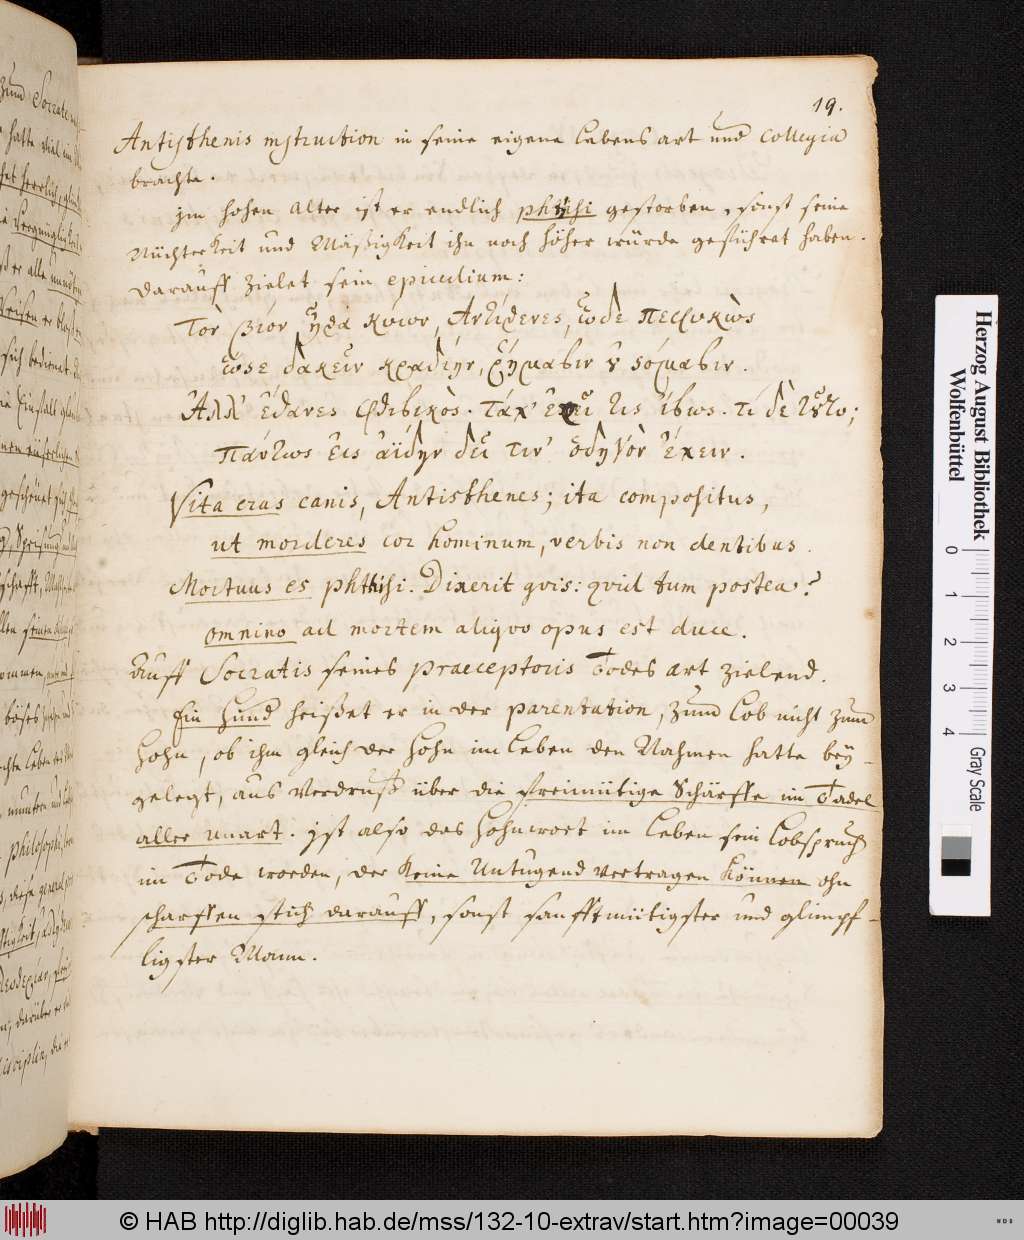 19.
Antisthenis instruction in seine eigene Lebens art und Collegia
brachte.
Im hohen Alter ist er endlich phthisi gestorben, sonst seine
Nüchterkeit und Mäßigkeit ihn noch höher würde geführet haben.
Darauff zielet sein epicedium:
Τὸν βίον ἦσθα κύων, Ἀντίσθενες, ὧδε πεφυκὼς
ὥστε δακεῖν κραδίην, ῥήμασιν οὐ στόμασιν.
Ἀλλ' ἔθανες φθισικὸς. τάχ' ἐρεῖ τις ἴσως. τί δὲ τοῦτο;
πάντως εἰς ἀΐδην δεῖ τιν' ὁδηγὸν ἔχειν.
Vita eras canis, Antisthenes; ita compositus,
ut morderes cor hominum, verbis non dentibus.
Mortuus es phthisi. Dixerit qvis: qvid tum postea?
omnino ad mortem aliqvo opus est duce.
Auff Socratis seines praeceptoris Todes art zielend.
Ein Hund heißet er in der parentation, zum Lob nicht zum
Hohn, ob ihm gleich der Hohn im Leben den Nahmen hatte bey-
gelegt, aus Verdruß über die freimütige Schärffe im Tadel
aller unart. Ist also das Hohnwort im Leben sein Lobspruch
im Tode worden, der keine Untugend vertragen können ohn
scharffen stich darauff, sonst sanfftmütigster und glimpf-
ligster Mann.
Herzog August Bibliothek
Wolfenbüttel
0 1 2 3 4
Gray Scale
© HAB http://diglib.hab.de/mss/132-10-extrav/start.htm?image=00039